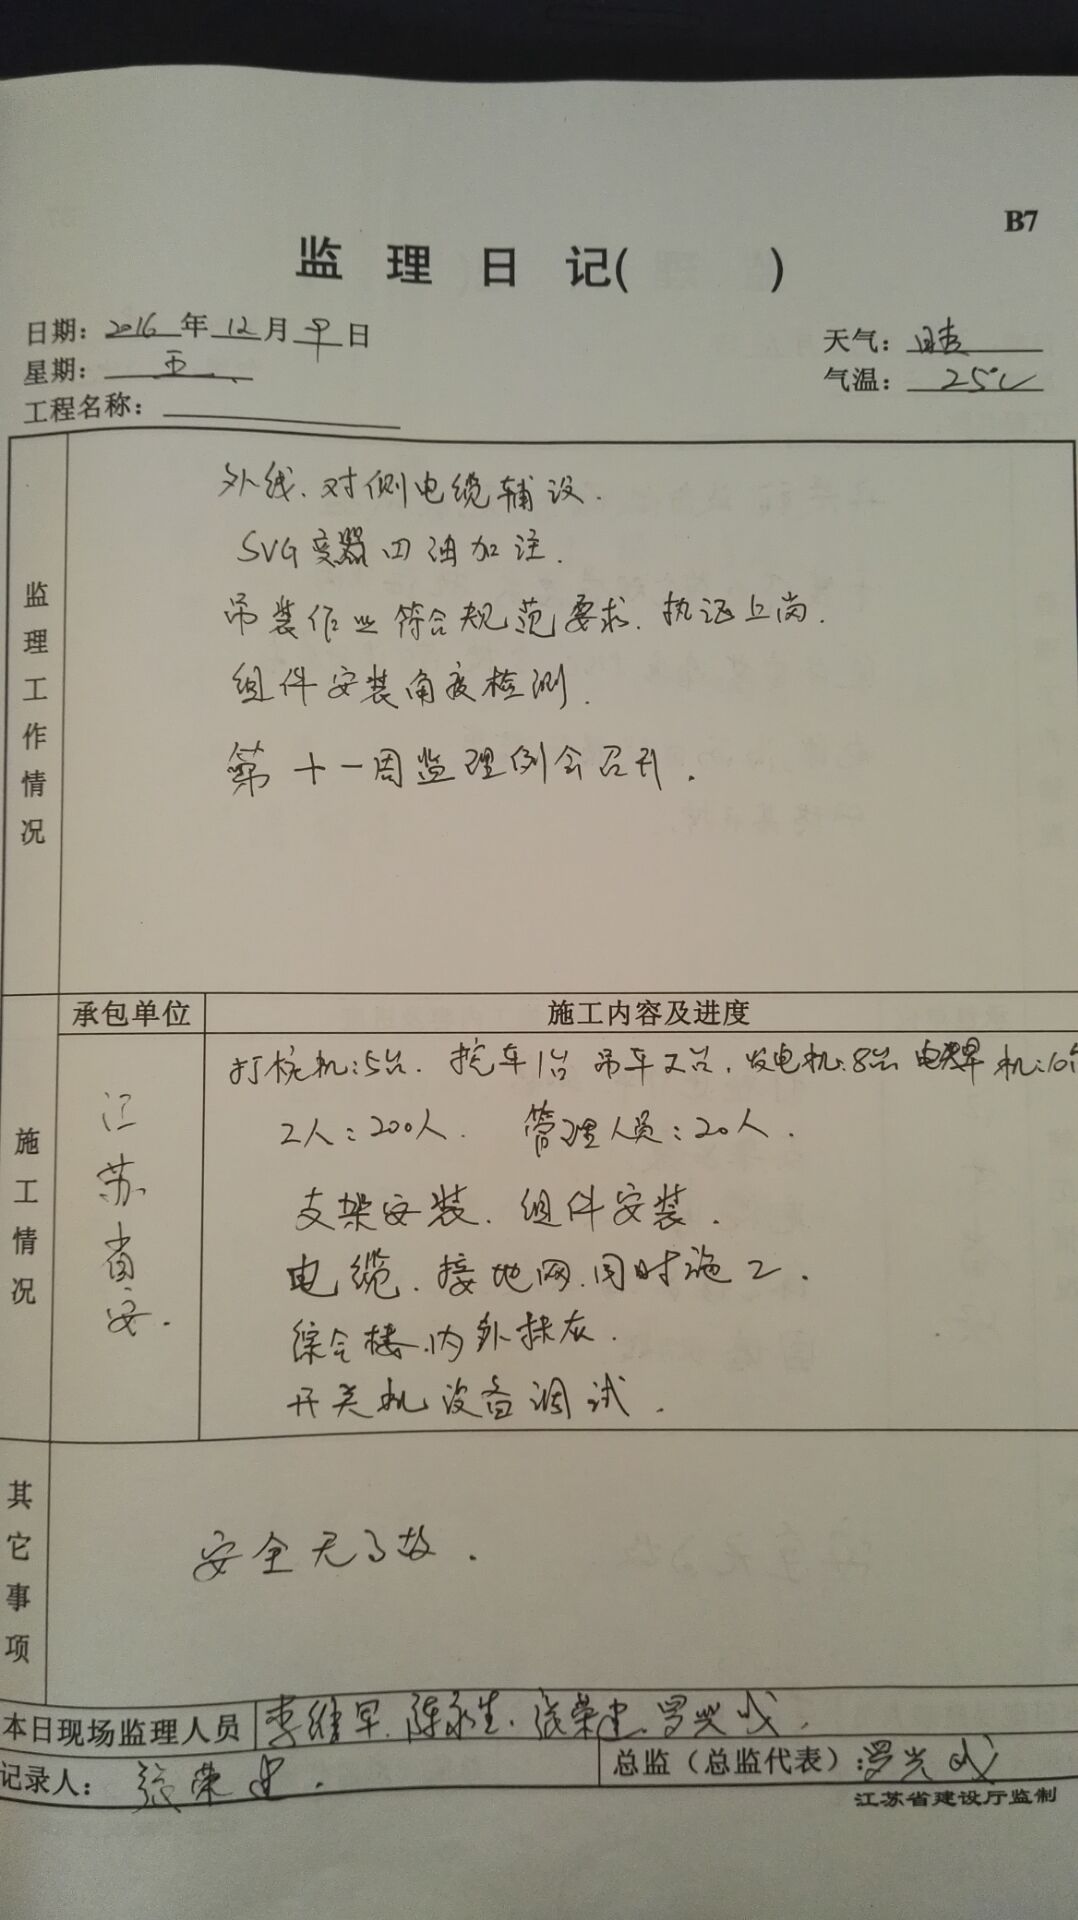 B7
监理日记( )
日期：2016年12月 日
天气：晴
星期：五
气温：25℃
工程名称：
监理工作情况
外线、对侧电缆辅设.
SVG变器 油加注.
吊装作业符合规范要求、执证上岗.
组件安装角度检测.
第十一周监理例会召开.
承包单位
施工内容及进度
施工情况
江苏省安.
打桩机:5台. 挖车1台 吊车2台, 发电机:8台 电焊机:10台
工人:200人. 管理人员:20人.
支架安装、组件安装.
电缆、接地网、同时施工.
综合楼、内外抹灰.
开关机设备调试.
其它事项
安全无事故.
本日现场监理人员 陈永生、张荣建、罗兴成,
记录人：张荣建.
总监（总监代表）:罗兴成
江苏省建设厅监制